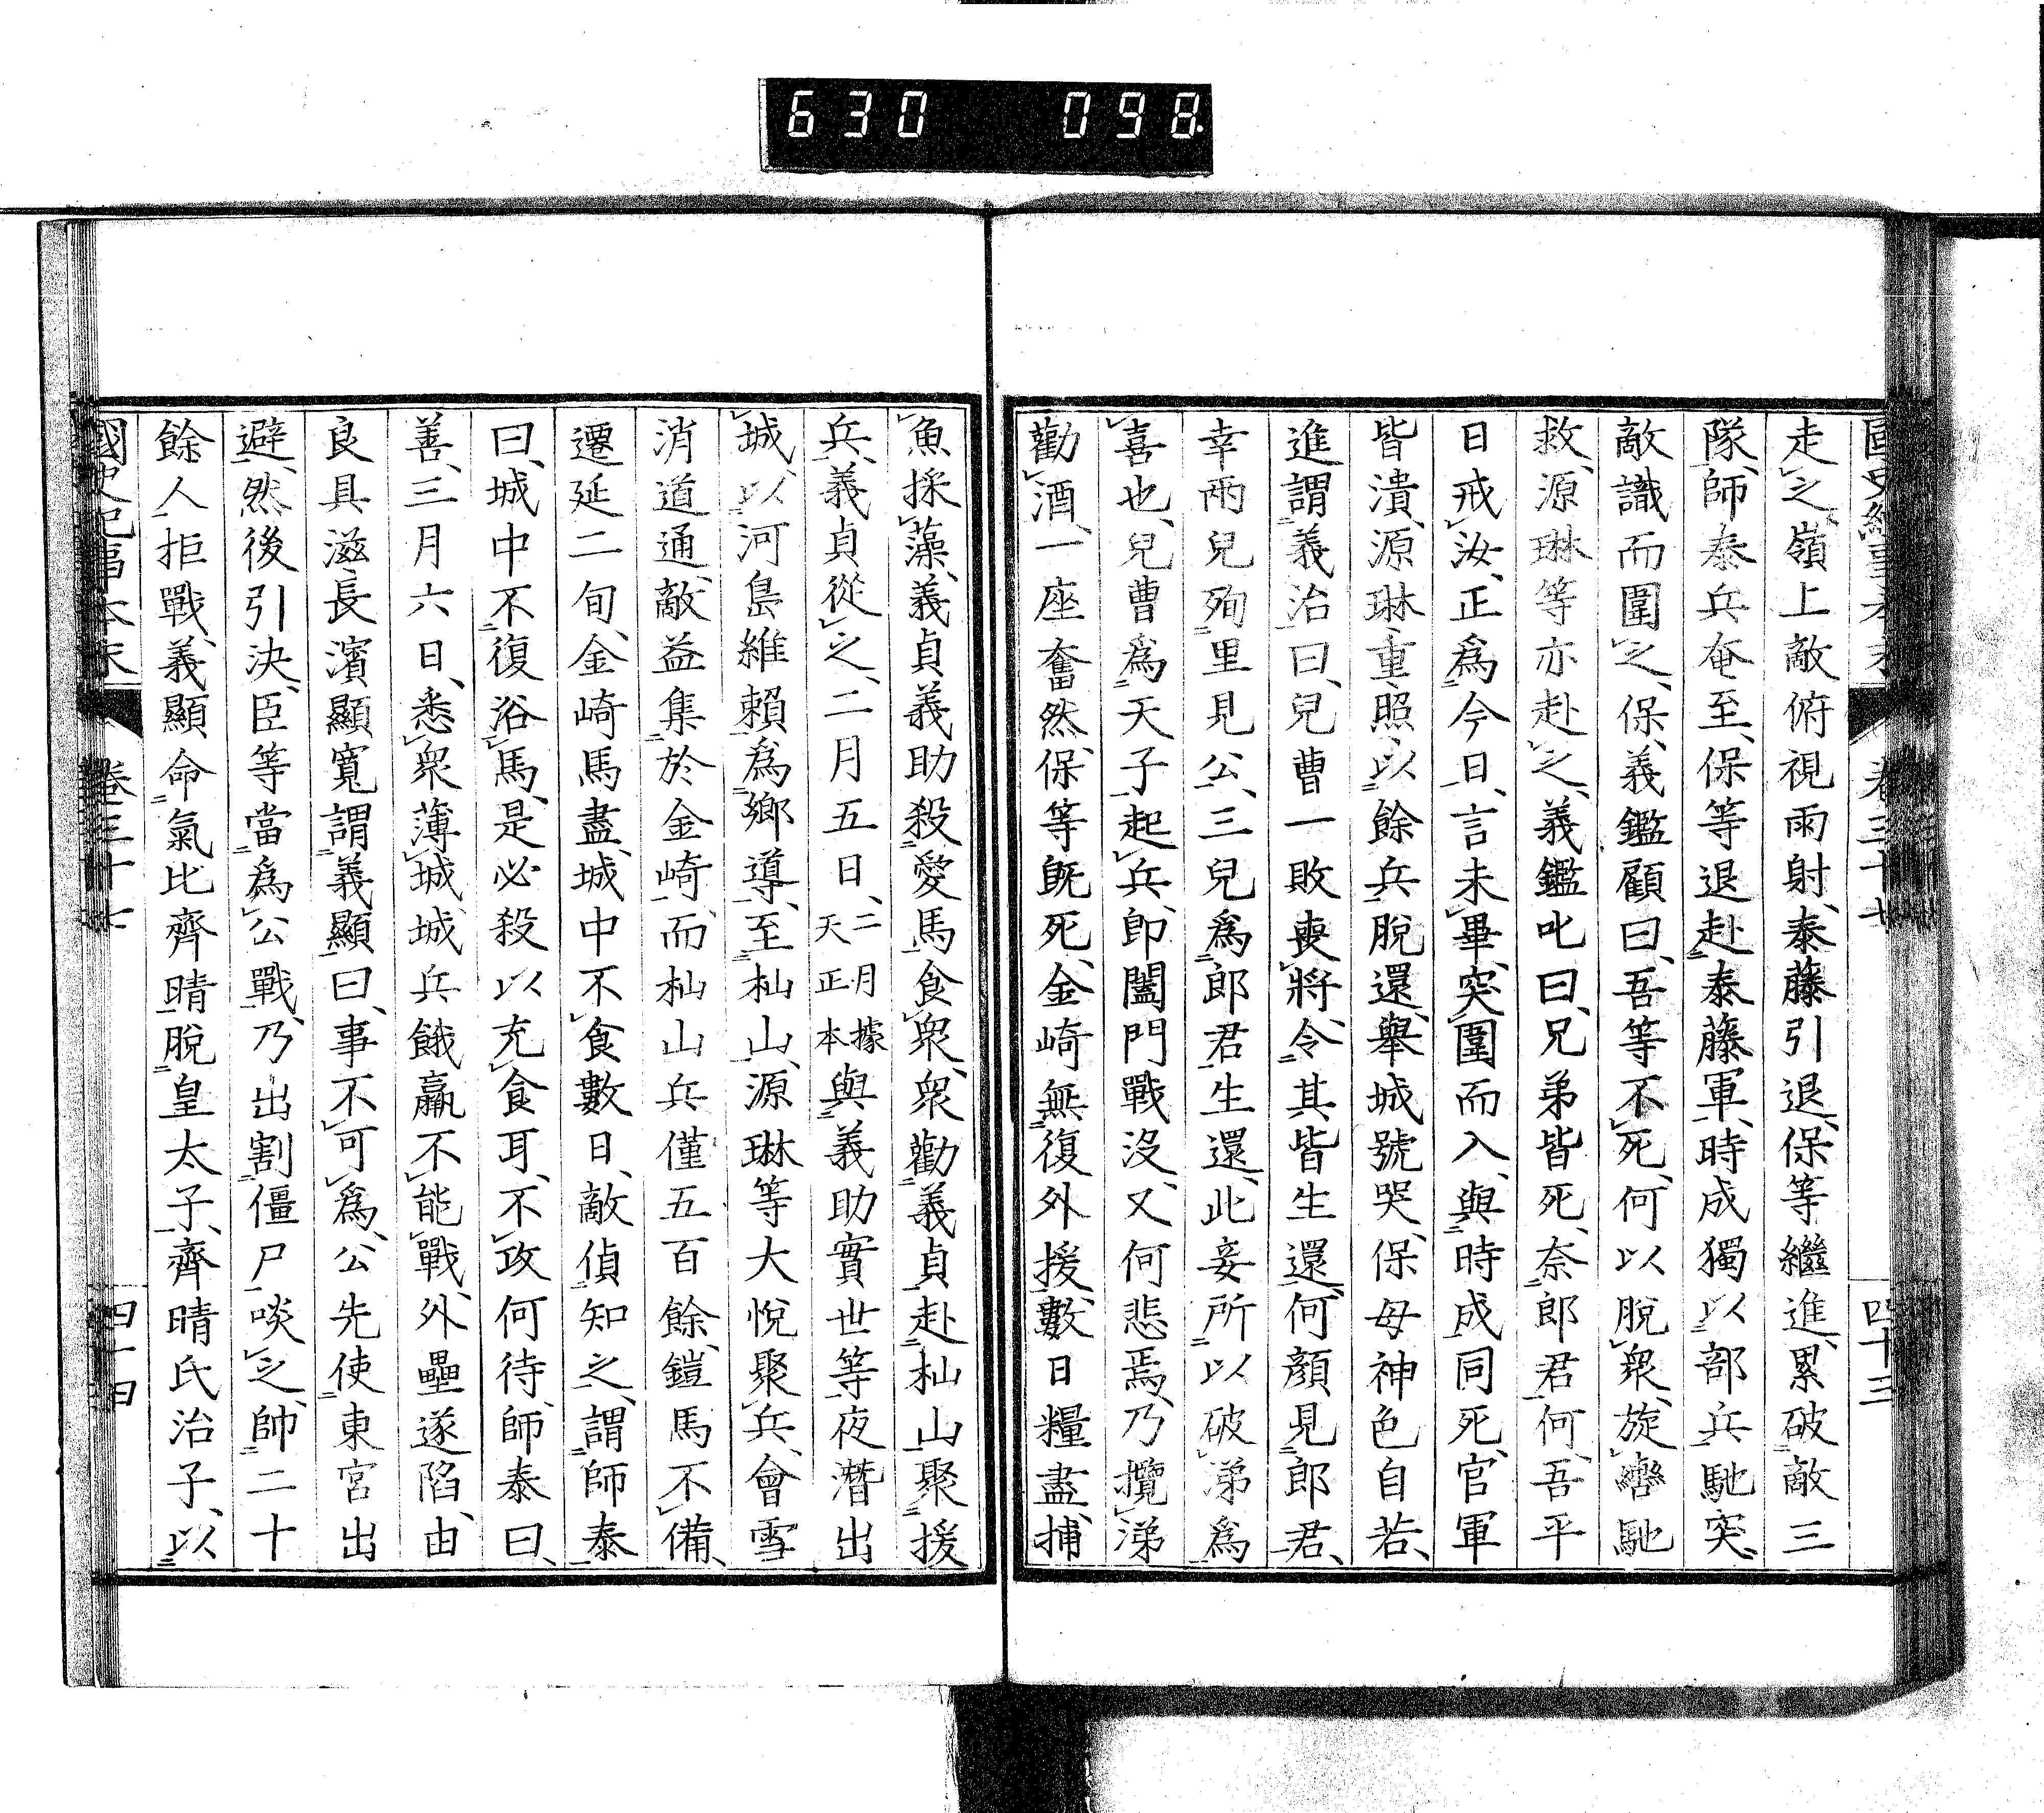 630 098
國史紀事本末 卷三十七 四十三
走之、嶺上敵俯視雨射、泰藤引退、保等繼進、累破敵三
隊、師泰兵奄至、保等退赴泰藤軍、時成獨以部兵馳突、
敵識而圍之、保、義鑑顧曰、吾等不死、何以脫衆、旋轡馳
救、源琳等亦赴之、義鑑叱曰、兄弟皆死、奈郎君何、吾平
日戒汝、正爲今日、言未畢、突圍而入、與時成同死、官軍
皆潰、源琳重照以餘兵脫還、舉城號哭、保母神色自若、
進謂義治曰、兒曹一敗喪將、令其皆生還、何顏見郎君、
幸兩兒殉里見公、三兒爲郎君生還、此妾所以破涕爲
喜也、兒曹爲天子起兵、卽闔門戰沒、又何悲焉、乃攬涕
勸酒、一座奮然、保等旣死、金崎無復外援、數日糧盡、捕
魚採藻、義貞義助殺愛馬食衆、衆勸義貞赴杣山聚援
兵、義貞從之、二月五日、二月據天正本與義助實世等夜潛出
城、以河島維賴爲鄉導、至杣山、源琳等大悅聚兵、會雪
消道通、敵益集於金崎、而杣山兵僅五百餘、鎧馬不備、
遷延二旬、金崎馬盡、城中不食數日、敵偵知之、謂師泰
曰、城中不復浴馬、是必殺以充食耳、不攻何待、師泰曰、
善、三月六日、悉衆薄城、城兵餓羸不能戰、外壘遂陷、由
良具滋長濱顯寬謂義顯曰、事不可爲、公先使東宮出
避、然後引決、臣等當爲公戰、乃出割僵尸啖之、帥二十
餘人拒戰、義顯命氣比齊晴脫皇太子、齊晴氏治子、以
國史紀事本末 卷三十七 四十四